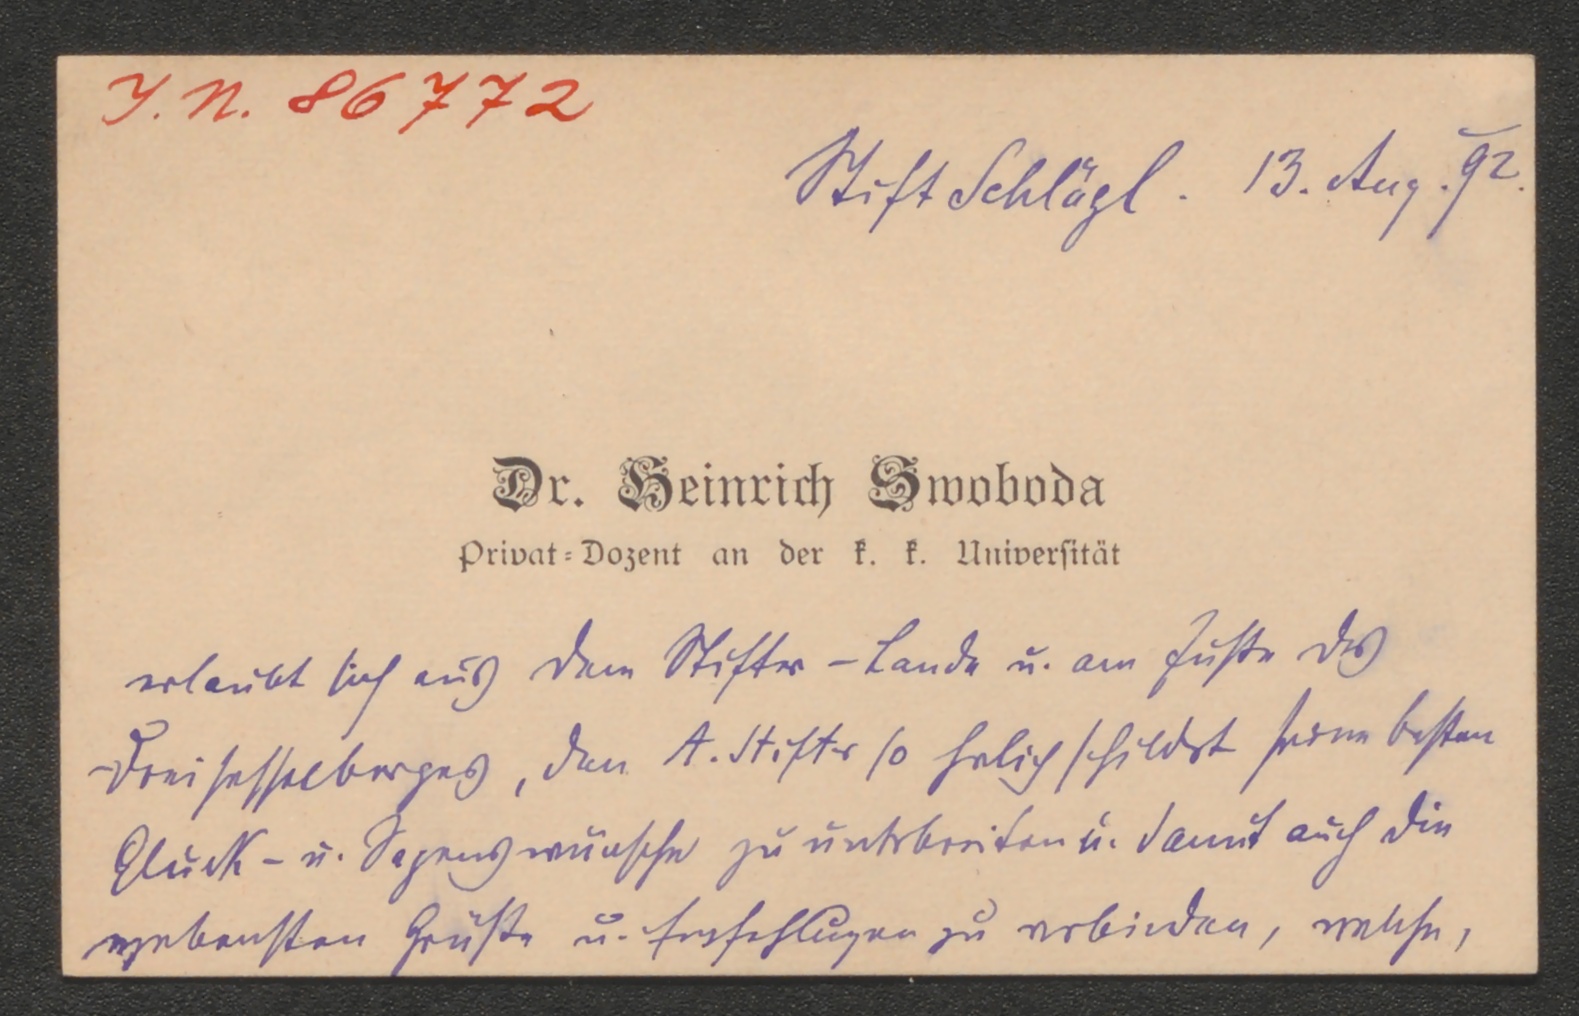 I. N. 86772
Stift Schlägl. 13. Aug. 92.
Dr. Heinrich Swoboda
Privat-Dozent an der k. k. Universität
erlaubt sich aus dem Stifter-Lande u. am Fuße des
Dreisesselberges, den A. Stifter so herlich schildert seine besten
Glück- u. Segenswünsche zu unterbreiten u. damit auch die
ergebensten Grüße u. Empfehlungen zu verbinden, welche,